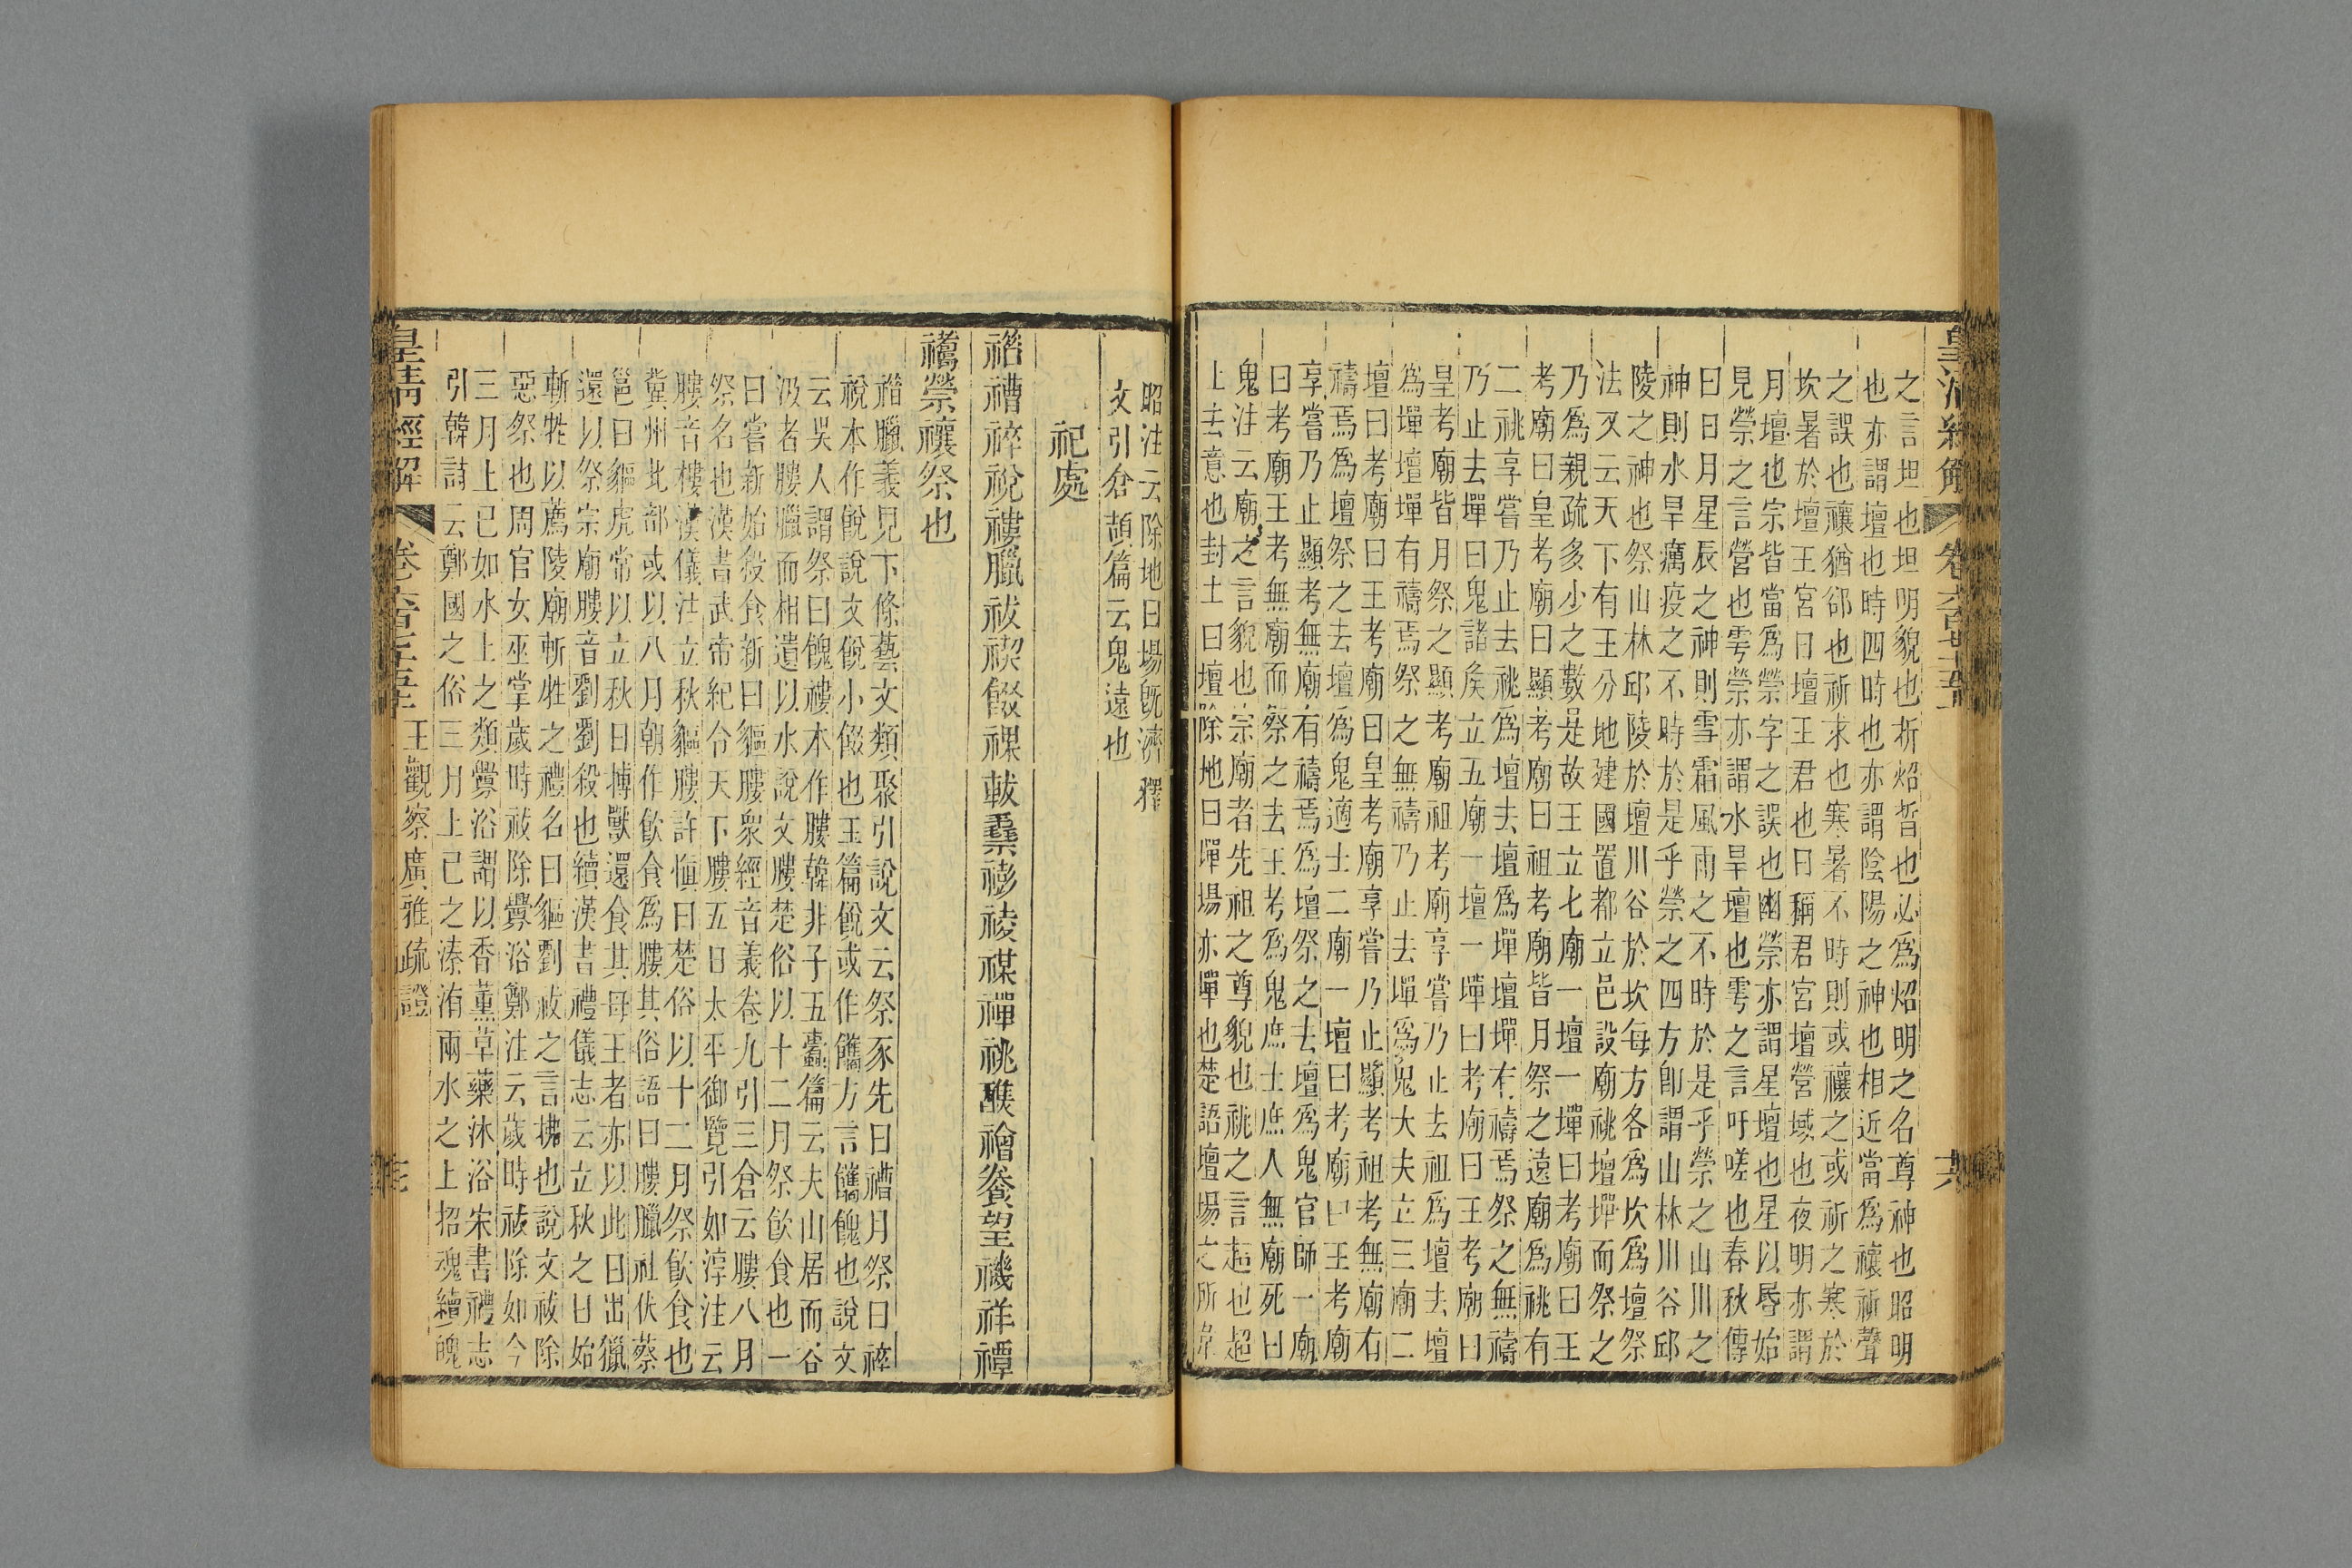 之言坦也坦明貌也析炤晢也必爲炤明之名尊神也昭明
也亦謂壇也時四時也亦謂陰陽之神也相近當爲禳祈聲
之誤也禳猶郤也祈求也寒暑不時則或禳之或祈之寒於
坎暑於壇王宮日壇王君也日稱君宮壇營域也夜明亦謂
月壇也宗皆當爲禜字之誤也幽禜亦謂星壇也星以昬始
見禜之言營也雩禜亦謂水旱壇也雩之言吁嗟也春秋傳
曰日月星辰之神則雪霜風雨之不時於是乎禜之山川之
神則水旱癘疫之不時於是乎禜之四方卽謂山林川谷邱
陵之神也祭山林邱陵於壇川谷於坎每方各爲坎爲壇祭
法又云天下有王分地建國置都立邑設廟祧壇墠而祭之
乃爲親疏多少之數是故王立七廟一壇一墠曰考廟曰王
考廟曰皇考廟曰顯考廟曰祖考廟皆月祭之遠廟爲祧有
二祧享嘗乃止去祧爲壇去壇爲墠壇墠有禱焉祭之無禱
乃止去墠曰鬼諸矦立五廟一壇一墠曰考廟曰王考廟曰
皇考廟皆月祭之顯考廟祖考廟享嘗乃止去祖爲壇去壇
爲墠壇墠有禱焉祭之無禱乃止去墠爲鬼大夫立三廟二
壇曰考廟曰王考廟曰皇考廟享嘗乃止顯考祖考無廟有
禱焉爲壇祭之去壇爲鬼適士二廟一壇曰考廟曰王考廟
享嘗乃止顯考無廟有禱焉爲壇祭之去壇爲鬼官師一廟
曰考廟王考無廟而祭之去王考爲鬼庶士庶人無廟死曰
鬼注云廟之言貌也宗廟者先祖之尊貌也祧之言超也超
上去意也封土曰壇除地曰墠場亦墠也楚語壇場之所韋
昭注云除地曰場旣濟釋
文引倉頡篇云鬼遠也
祀處
祰禮祽祱䄛臘祓禊餟祼軷䨮䄘祾禖禪祧醮禬餋望禨祥禫
䄟禜禳祭也
䄍臘義見下條藝文類聚引說文云祭豕先曰禮月祭曰祽
祱本作餽說文餽小餟也玉篇餽或作䭨方言䭨餽也說文
云吳人謂祭曰餽䄛本作膢韓非子五蠹篇云夫山居而谷
汲者膢臘而相遺以水說文膢楚俗以十二月祭飮食也一
曰嘗新始殺食新曰貙膢衆經音義卷九引三倉云膢八月
祭名也漢書武帝紀令天下膢五日太平御覽引如淳注云
膢音樓漢儀注立秋貙膢許愼曰楚俗以十二月祭飮食也
冀州北部或以八月朝作飮食爲膢其俗語曰膢臘社伏蔡
邕曰貙虎常以立秋日搏獸還食其母王者亦以此日出獵
還以祭宗廟膢音劉劉殺也續漢書禮儀志云立秋之日始
斬牲以薦陵廟斬牲之禮名曰貙劉祓之言拂也說文祓除
惡祭也周官女巫掌歲時祓除釁浴鄭注云歲時祓除如今
三月上巳如水上之類釁浴謂以香薰草藥沐浴宋書禮志
引韓詩云鄭國之俗三月上巳之溱洧兩水之上招魂續魄
皇淸經解
卷六百七十五
王觀察廣雅疏證